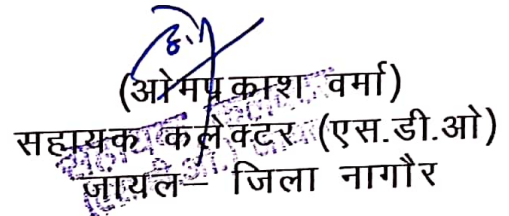 (ओमप्रकाश वर्मा)
सहायक कलेक्टर (एस.डी.ओ)
जायल– जिला नागौर